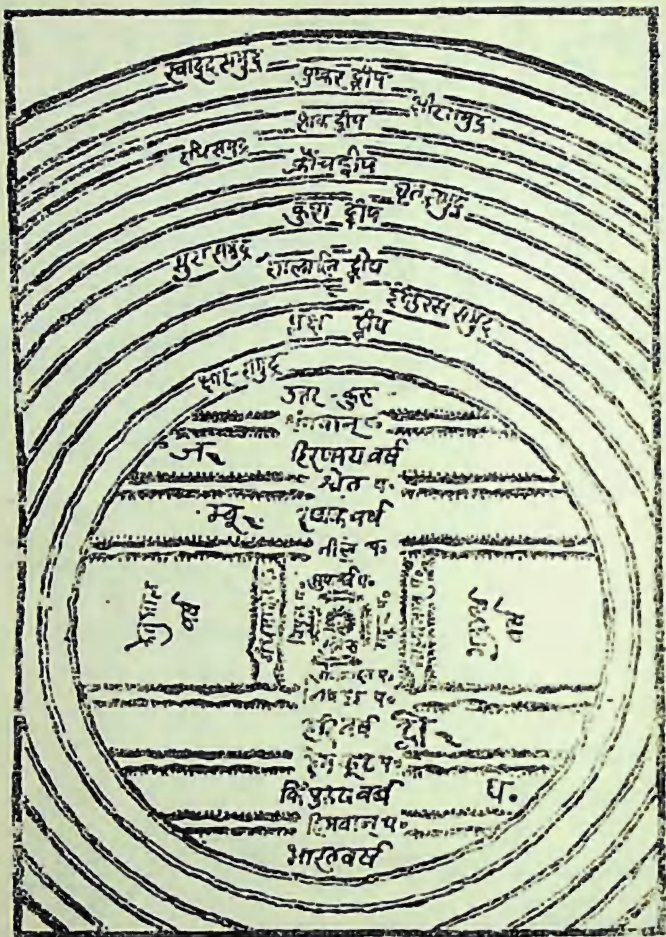 स्वादूद समुद्र
पुष्कर द्वीप
क्षीर समुद्र
शाकद्वीप
दधि समुद्र
क्रौंचद्वीप
घृत समुद्र
कुश द्वीप
सुरा समुद्र
शाल्मलि द्वीप
इक्षुरस समुद्र
प्लक्ष द्वीप
क्षार-समुद्र
उत्तर-कुरु
शृंगवान् प॰
जं
हिरण्मय वर्ष
श्वेत प॰
म्बू
रम्यक वर्ष
नील प॰
सुपार्श्व प॰
केतुमाल
वर्ष
विपुल प॰
भद्राश्व
वर्ष
निषध प॰
हरि वर्ष
द्वी
हेम कूट प॰
किंपुरुष वर्ष
प॰
हिमवान् प॰
भारतवर्ष